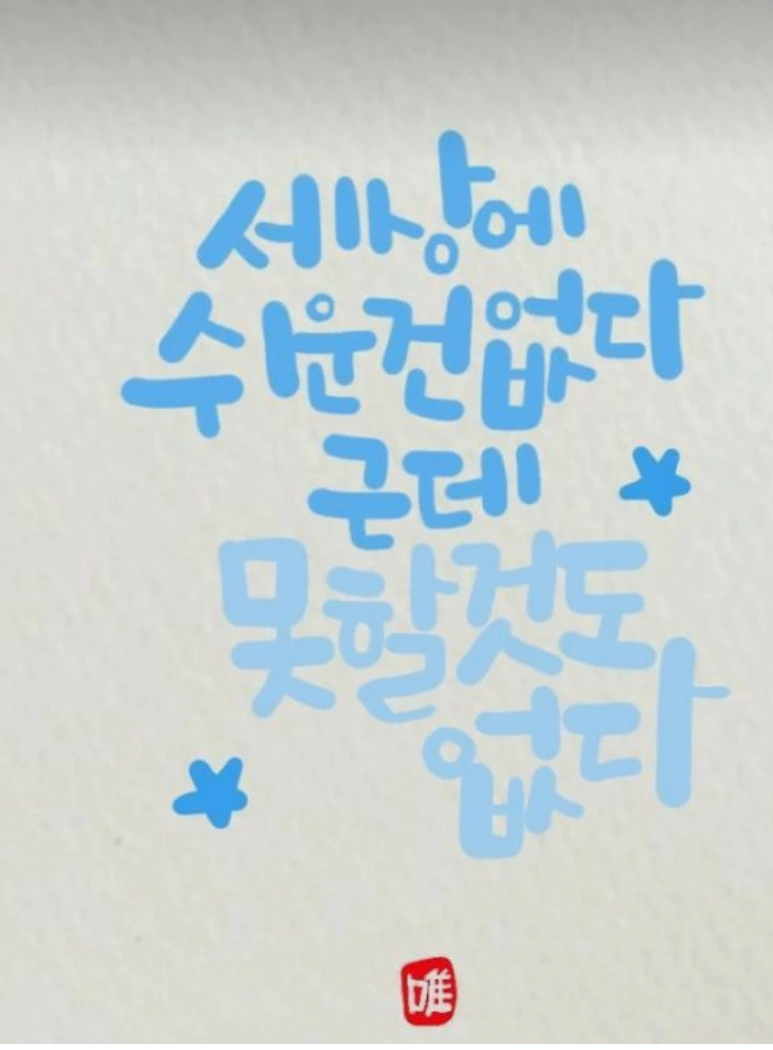 세상에
쉬운건없다
근데
못할것도
없다
唯